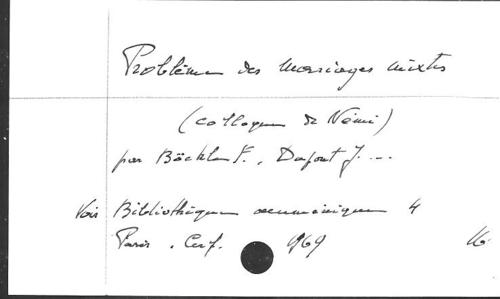 Problèmes des mariages mixtes
(colloque de Némi)
par Böckle F., Dupont J. ...
Voir Bibliothèque oecuménique 4
Paris. Cerf. 1969 16